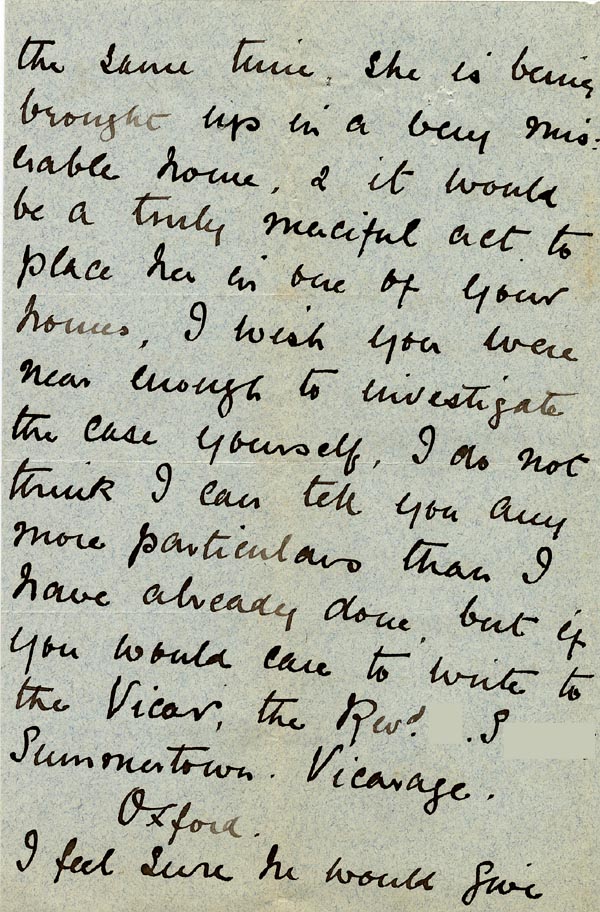 the same time. She is being
brought up in a very mis-
erable home, & it would
be a truly merciful act to
place her in one of your
homes, I wish you were
near enough to investigate
the case yourself, I do not
think I can tell you any
more particulars than I
have already done, but if
you would care to write to
the Vicar, the Revd. .S
Summertown. Vicarage.
Oxford.
I feel sure he would give